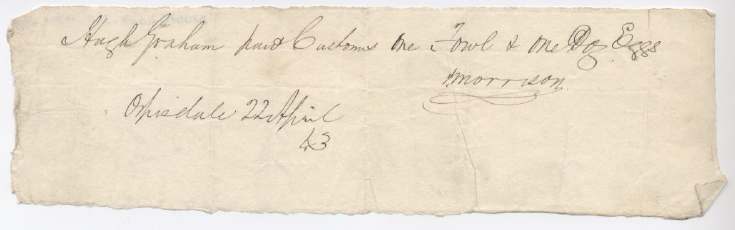 Hugh Graham paid Customs one Fowl & one Doz Eggs
Morrison
Ospisdale 22 April
43